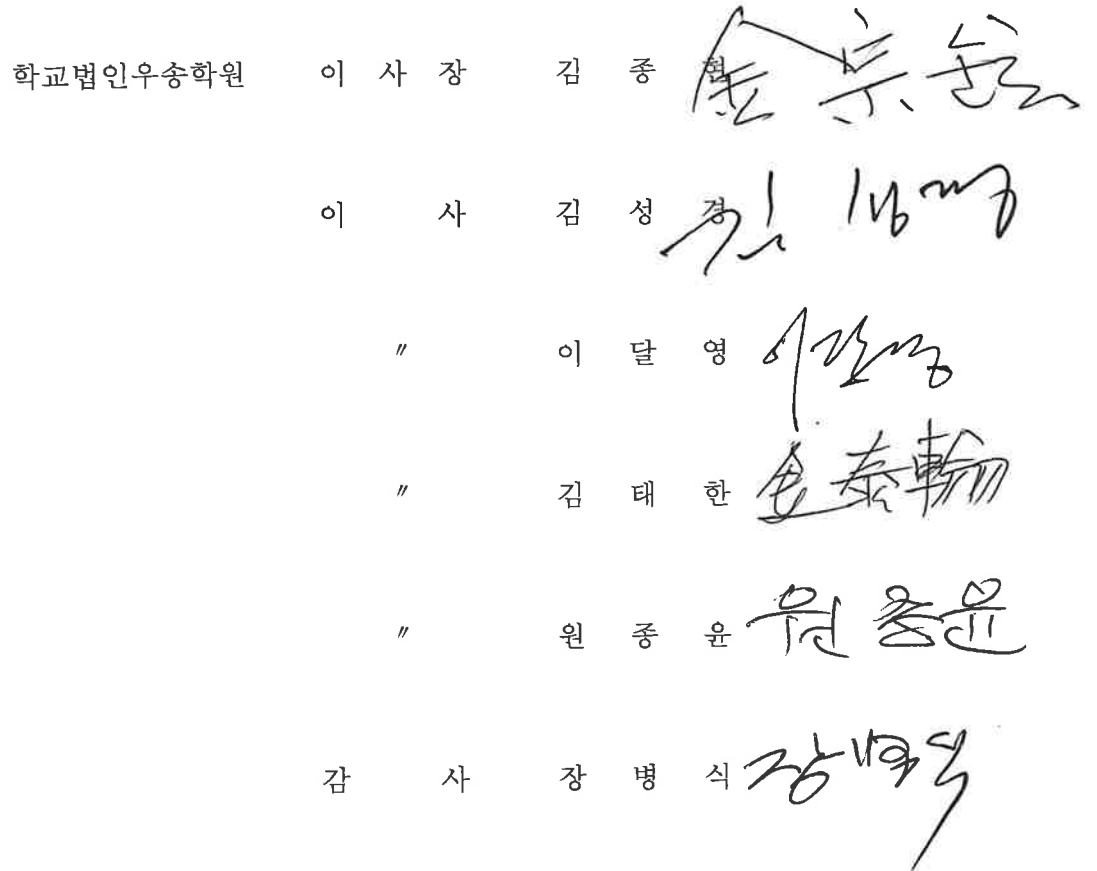 학교법인우송학원 이 사 장 김 종 현 金宗
이 사 김 성 경 김성경
〃 이 달 영 이달영
〃 김 태 한 金泰翰
〃 원 종 윤 원종윤
감 사 장 병 식 장병식